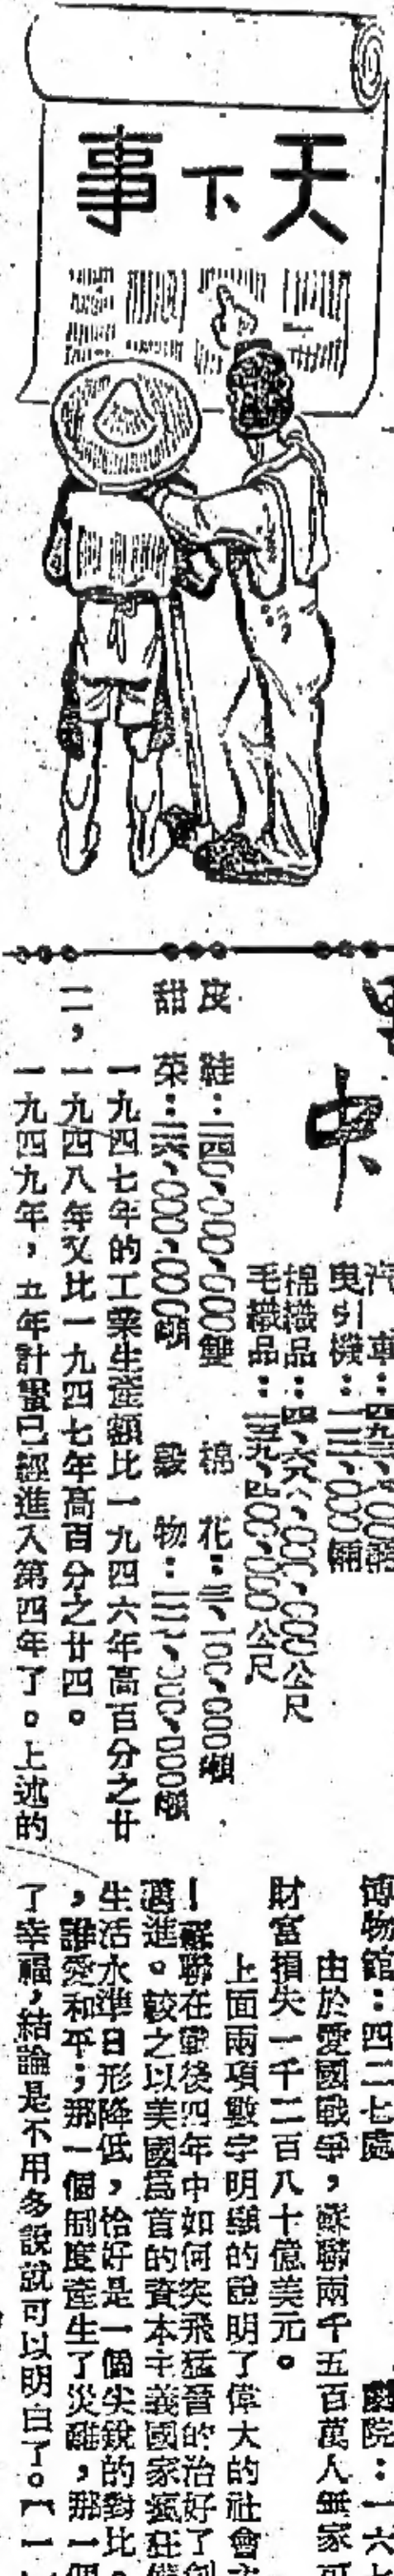 天下事
中
汽車：
曳引機：一一二、〇〇〇輛
棉織品：四、六八〇、〇〇〇、〇〇〇公尺
毛織品：一五九、四〇〇、〇〇〇公尺
皮鞋：二四〇、〇〇〇、〇〇〇雙　棉花：三、一〇〇、〇〇〇噸
甜菜：二六、〇〇〇、〇〇〇噸　穀物：一二七、〇〇〇、〇〇〇噸
一九四七年的工業生產額比一九四六年高百分之廿
二，一九四八年又比一九四七年高百分之廿四。
一九四九年，五年計劃已經進入第四年了。上述的
博物館：四二七處　劇院：一六七
由於愛國戰爭，蘇聯兩千五百萬人無家可
財富損失一千二百八十億美元。
上面兩項數字明顯的說明了偉大的社會主
！蘇聯在戰後四年中如何突飛猛晉的治好了創
邁進。較之以美國爲首的資本主義國家瘋狂備
生活水準日形降低，恰好是一個尖銳的對比。
，誰愛和平；那一個制度產生了災難，那一個
了幸福，結論是不用多說就可以明白了。